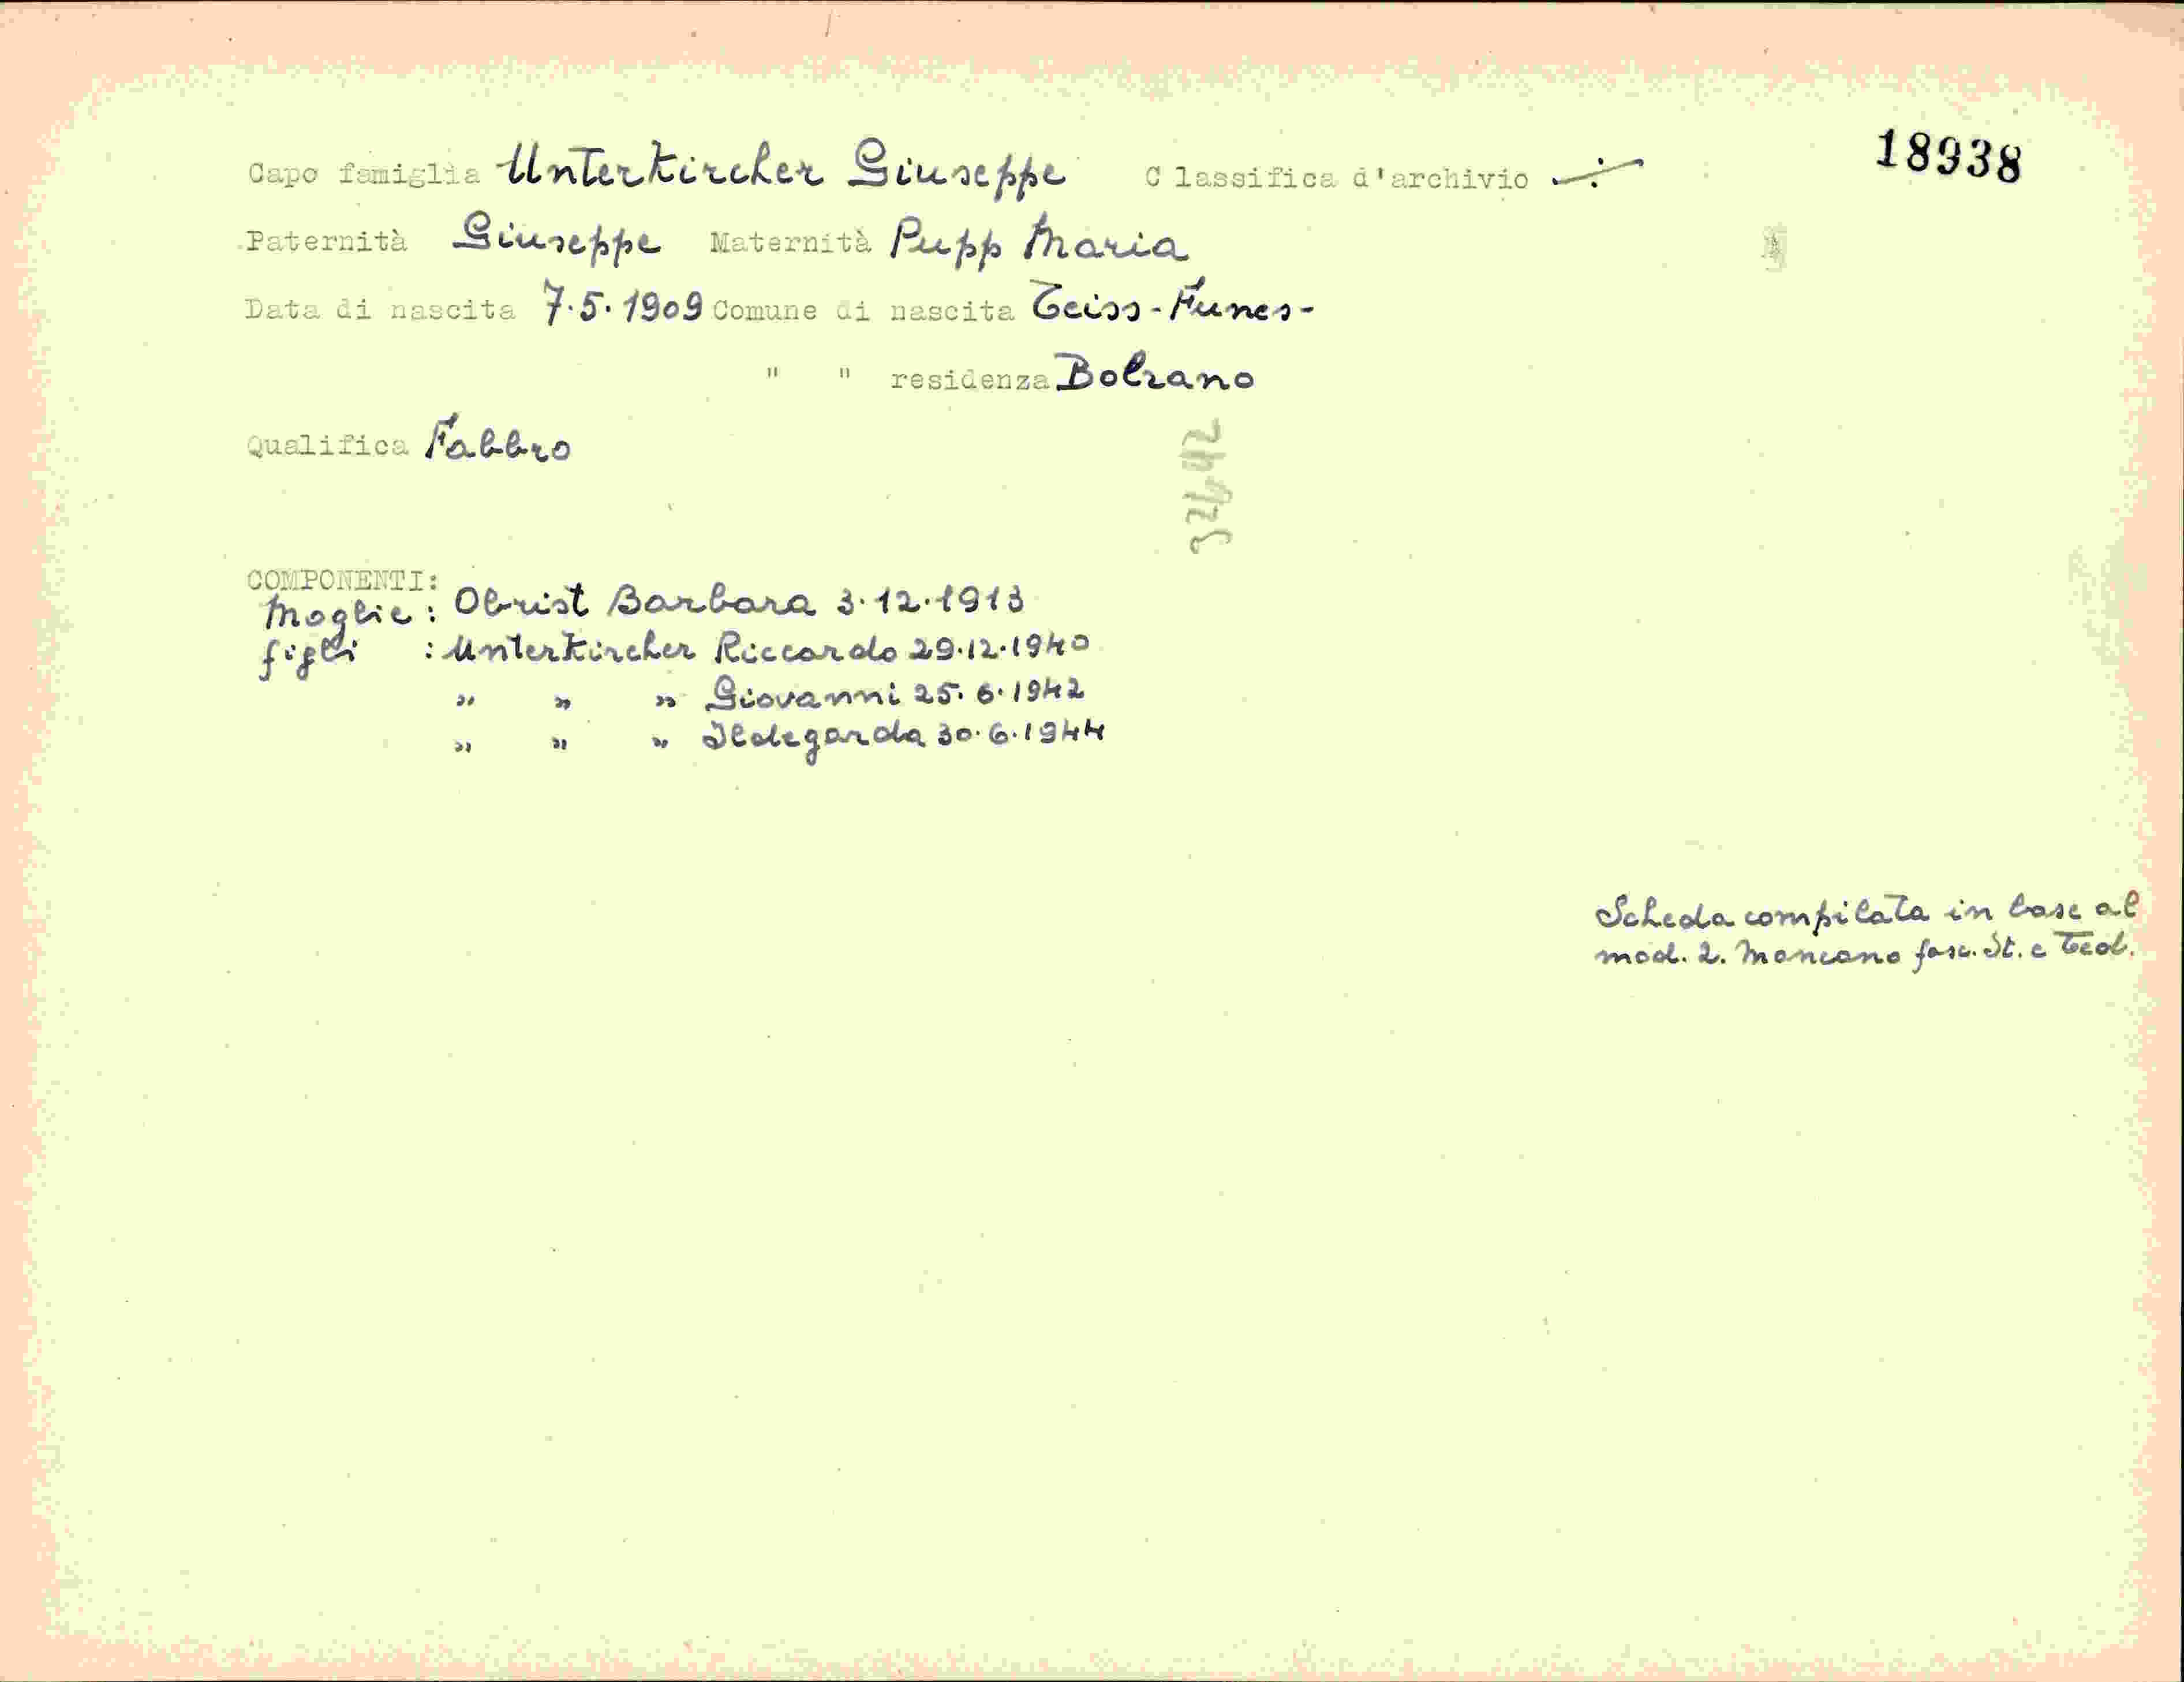 18938
Capo famiglia Unterkircher Giuseppe Classifica d'archivio ./.
Paternità Giuseppe Maternità Pupp Maria
Data di nascita 7.5.1909 Comune di nascita Teiss-Funes-
" " residenza Bolzano
Qualifica Fabbro
32442
COMPONENTI:
Moglie: Obrist Barbara 3.12.1913
figli : Unterkircher Riccardo 29.12.1940
" " " Giovanni 25.6.1942
" " " Ildegarda 30.6.1944
Scheda compilata in base al
mod. 2. Mancano fasc. It. e Ted.